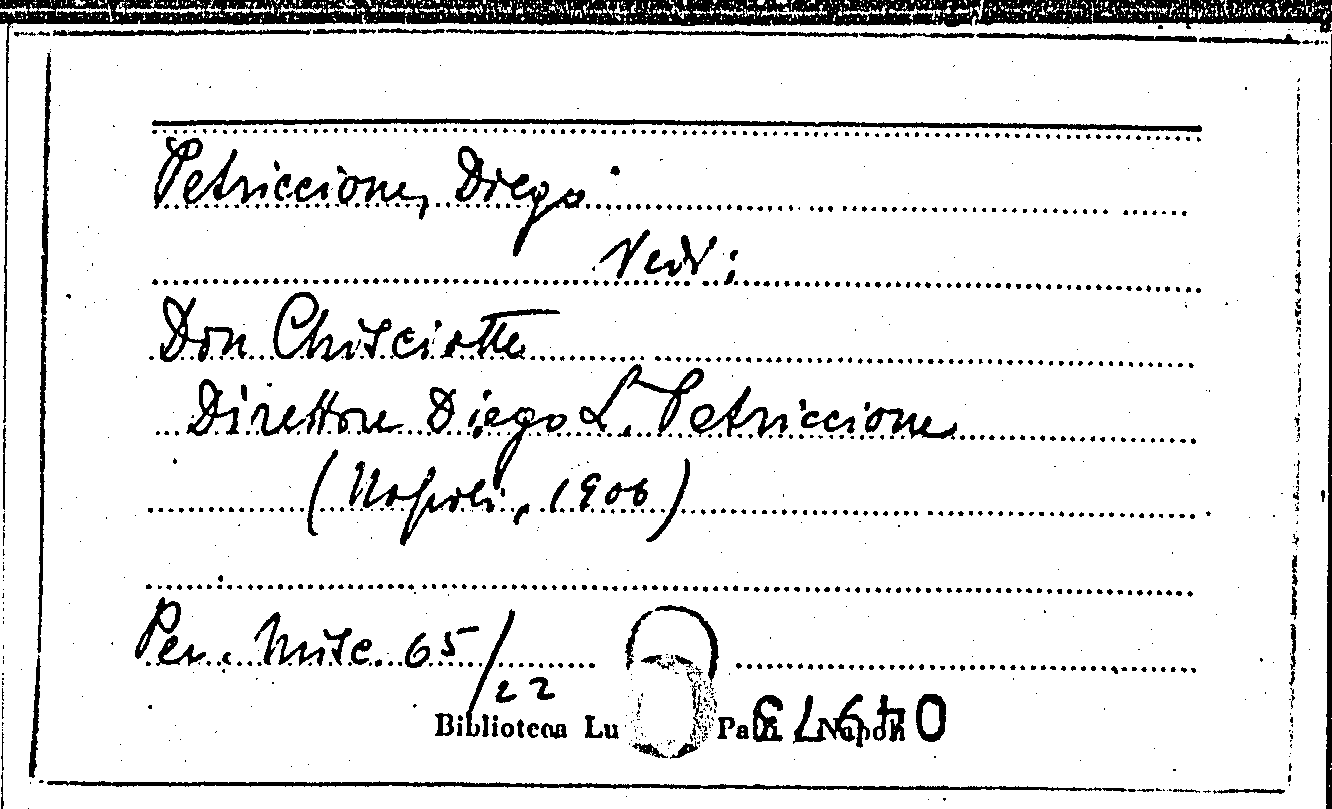 Petriccione, Diego
Vedi:
Don Chisciotte
Direttore Diego L. Petriccione
(Napoli, 1906)
Per. Misc. 65/22
Biblioteca Lu Pa Napoli